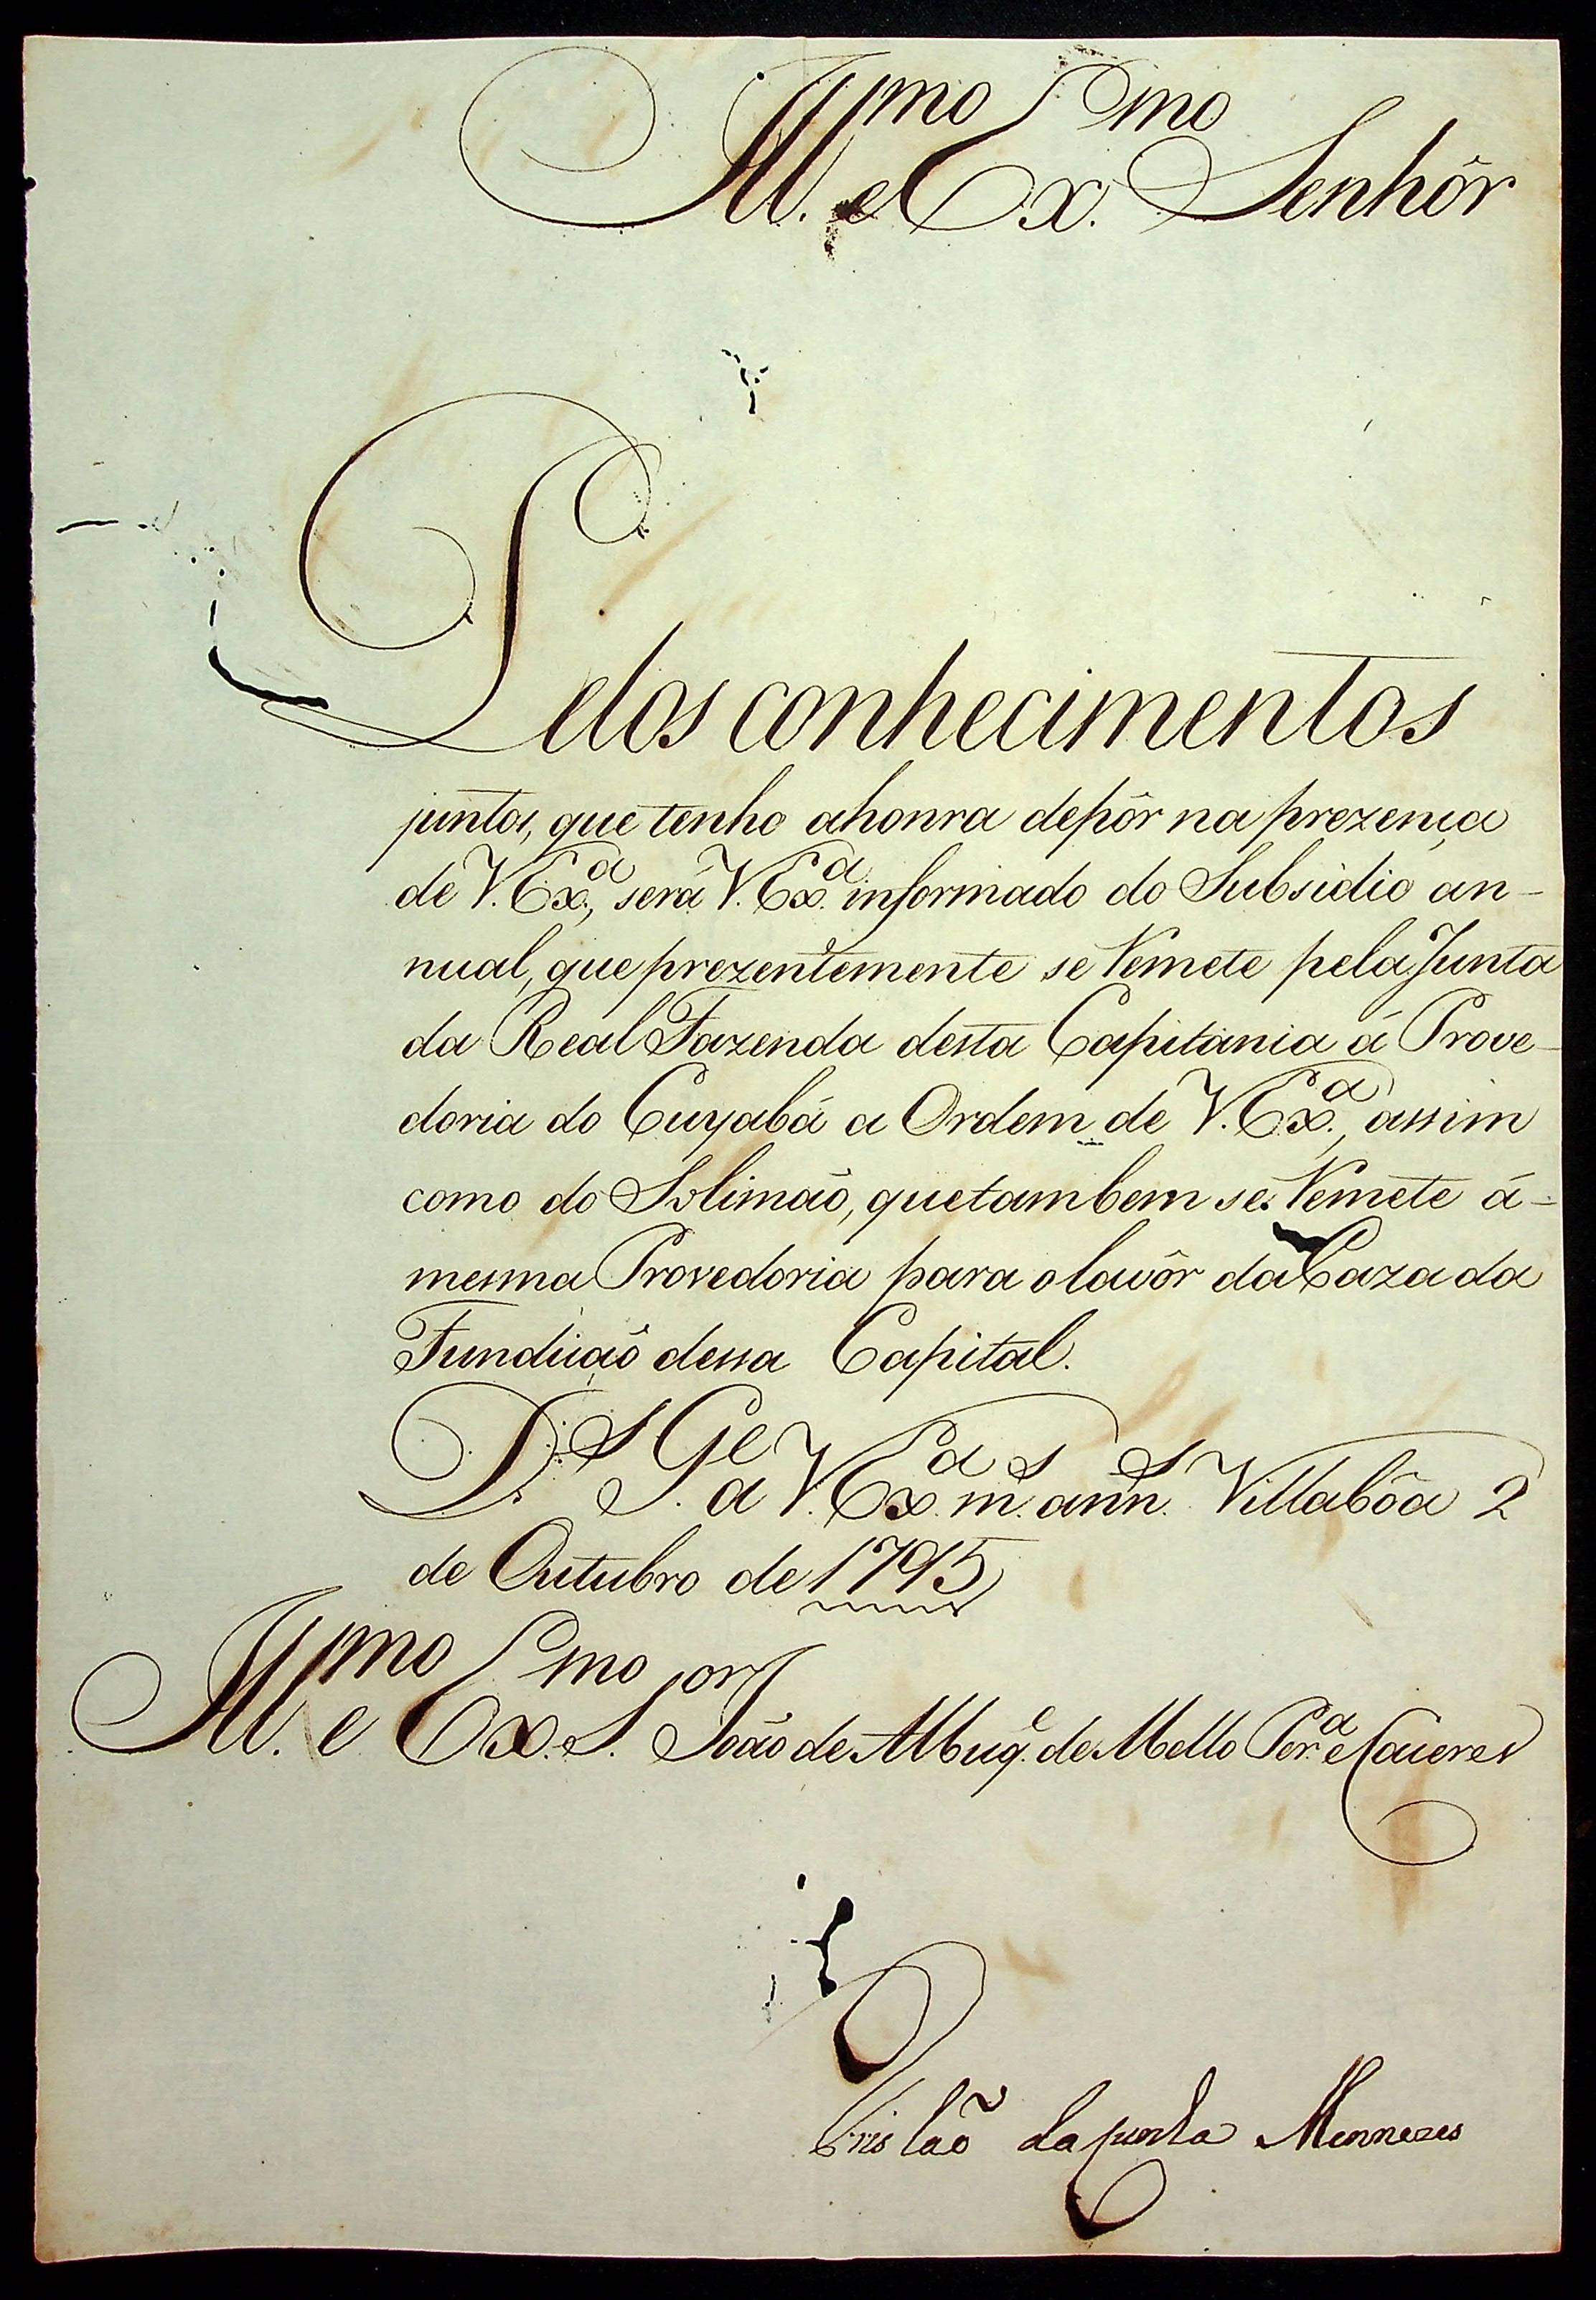 Ill.mo e Ex.mo Senhôr
Pelos conhecimentos
juntos, que tenho ahonra depôr na prezença
de V. Ex.a, será V. Ex.a informado do Subsidio an-
nual, que prezentemente se Remete pela Junta
da Real Fazenda desta Capitania á Prove-
doria do Cuyabá a Ordem de V. Ex.a, assim
como do Solimaõ, quetambem se Remete á-
mesma Provedoria para olavôr da Caza da
Fundiçaõ dessa Capital.
D.s G.e a V. Ex.a m.s ann.s Villabôa 2
de Outubro de 1795
Ill.mo e Ex.mo S.or Joaõ de Albuq.e de Mello Per.a e Caceres
Tristaõ da Cunha Mennezes